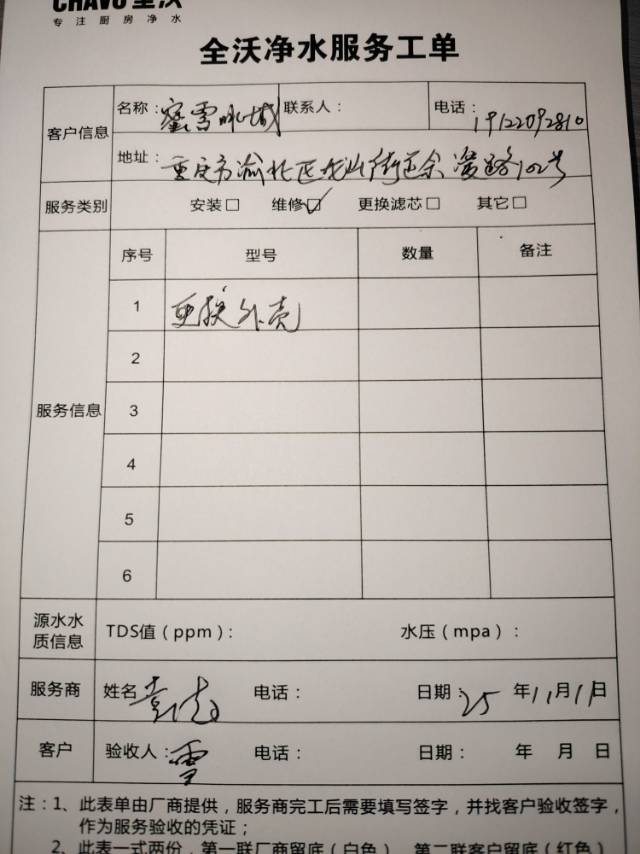 CHAVO 全沃
专注厨房净水
全沃净水服务工单
客户信息
名称：蜜雪冰城 联系人： 电话：19122092810
地址：重庆市渝北区龙山街道余溪路102号
服务类别 安装□ 维修☑ 更换滤芯□ 其它□
服务信息
序号 型号 数量 备注
1 更换外壳
2
3
4
5
6
源水水质信息 TDS值（ppm）： 水压（mpa）：
服务商 姓名 电话： 日期：25 年11月1日
客户 验收人：雪 电话： 日期： 年 月 日
注：1、此表单由厂商提供，服务商完工后需要填写签字，并找客户验收签字，
作为服务验收的凭证；
2、此表一式两份，第一联厂商留底（白色） 第二联客户留底（红色）